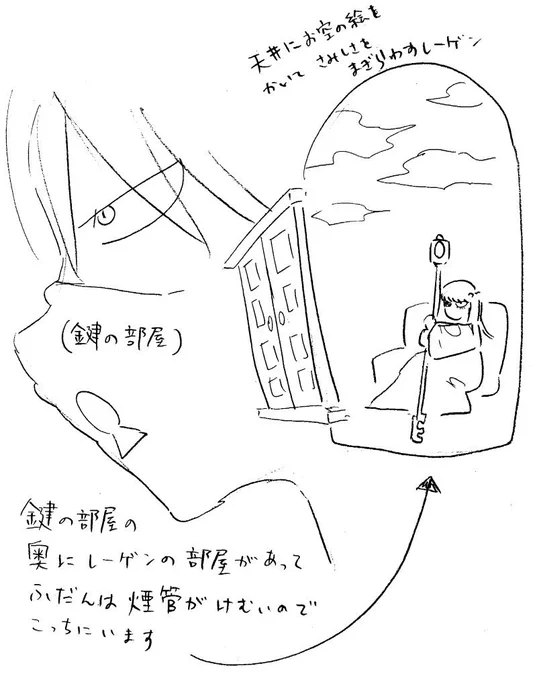 天井にお空の絵を
かいて さみしさを
まぎらわすレーゲン
(鍵の部屋)
鍵の部屋の
奥にレーゲンの部屋があって
ふだんは煙管がけむいので
こっちにいます